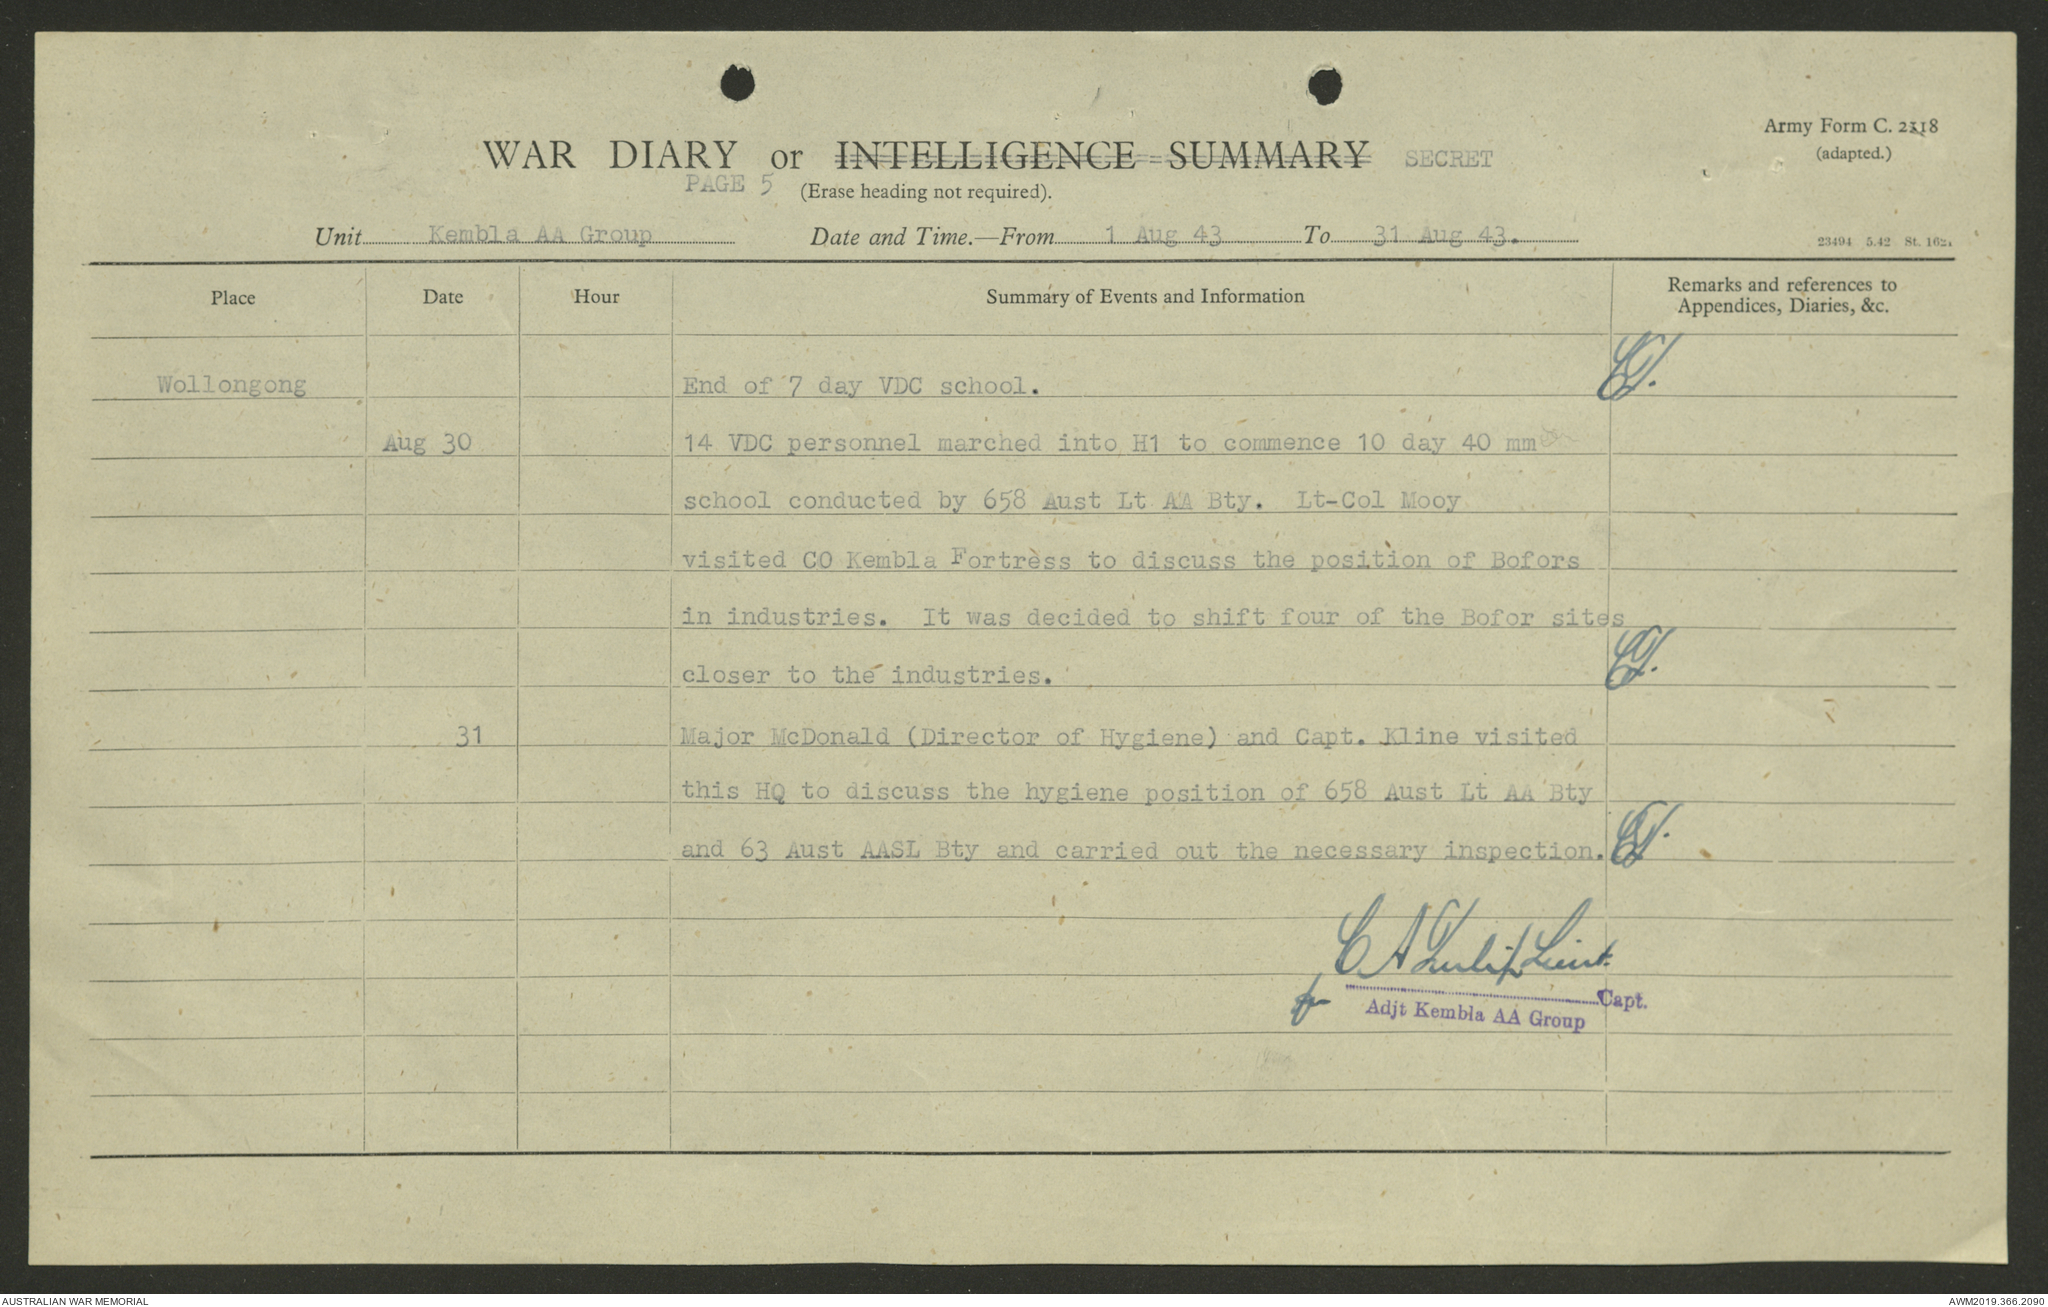 Army Form C. 2118
(adapted.)
WAR DIARY or INTELLIGENCE SUMMARY SECRET
PAGE 5 (Erase heading not required).
Unit Kembla AA Group Date and Time.—From 1 Aug 43 To 31 Aug 43.
23494 5.42 St. 1621
Place Date Hour Summary of Events and Information Remarks and references to
Appendices, Diaries, &c.
Wollongong End of 7 day VDC school.
Aug 30 14 VDC personnel marched into H1 to commence 10 day 40 mm
school conducted by 658 Aust Lt AA Bty. Lt-Col Mooy
visited CO Kembla Fortress to discuss the position of Bofors
in industries. It was decided to shift four of the Bofor sites
closer to the industries.
31 Major McDonald (Director of Hygiene) and Capt. Kline visited
this HQ to discuss the hygiene position of 658 Aust Lt AA Bty
and 63 Aust AASL Bty and carried out the necessary inspection.
C A Tulip Lieut.
for Capt.
Adjt Kembla AA Group
AUSTRALIAN WAR MEMORIAL AWM2019.366.2090